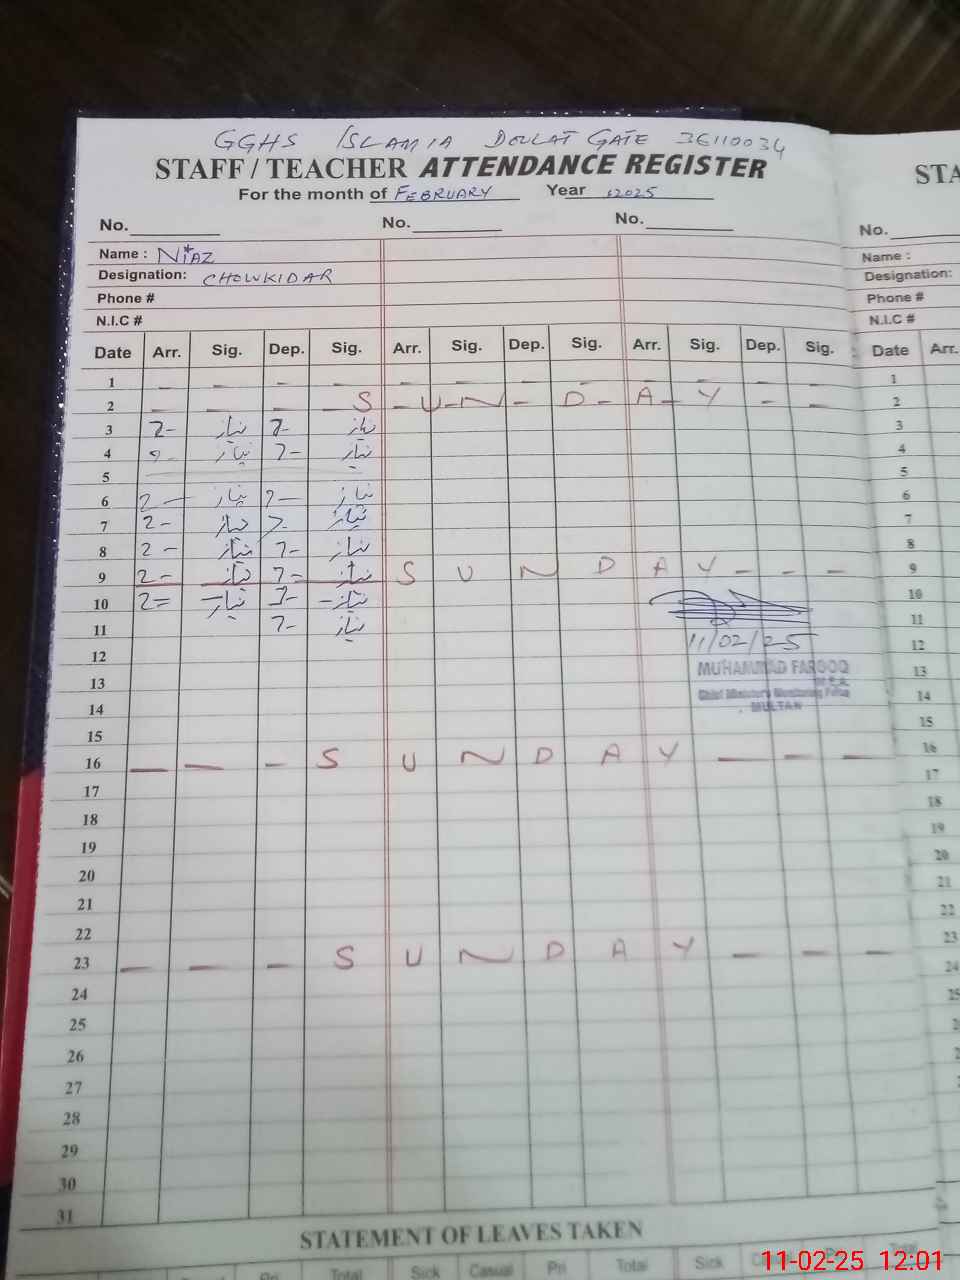 GGHS ISLAMIA DOULAT GATE 36110034
STAFF / TEACHER ATTENDANCE REGISTER
For the month of FEBRUARY Year 2025
No. No. No.
Name : NIAZ
Designation: CHOWKIDAR
Phone #
N.I.C #
Date Arr. Sig. Dep. Sig. Arr. Sig. Dep. Sig. Arr. Sig. Dep. Sig.
1 — — — — — — — — — — — —
2 — — — — S U N D A Y — —
3 2- نیاز 7- نیاز
4 نیاز 7- نیاز
5
6 2- نیاز 7- نیاز
7 2- نیاز 7- نیاز
8 2- نیاز 7- نیاز
9 2- نیاز 7- نیاز S U N D A Y - - -
10 2= نیاز 7- نیاز
11 7- نیاز
11/02/25
12
MUHAMMAD FAROOQ
13
Chief Minister's Monitoring Force
14 MULTAN
15
16 — — — S U N D A Y — — —
17
18
19
20
21
22
23 — — — S U N D A Y — — —
24
25
26
27
28
29
30
31
STATEMENT OF LEAVES TAKEN
Pri Total Sick Casual Pri Total Sick Total
STA
No.
Name :
Designation:
Phone #
N.I.C #
Date Arr.
1
2
3
4
5
6
7
8
9
10
11
12
13
14
15
16
17
18
19
20
21
22
23
24
25
11-02-25 12:01